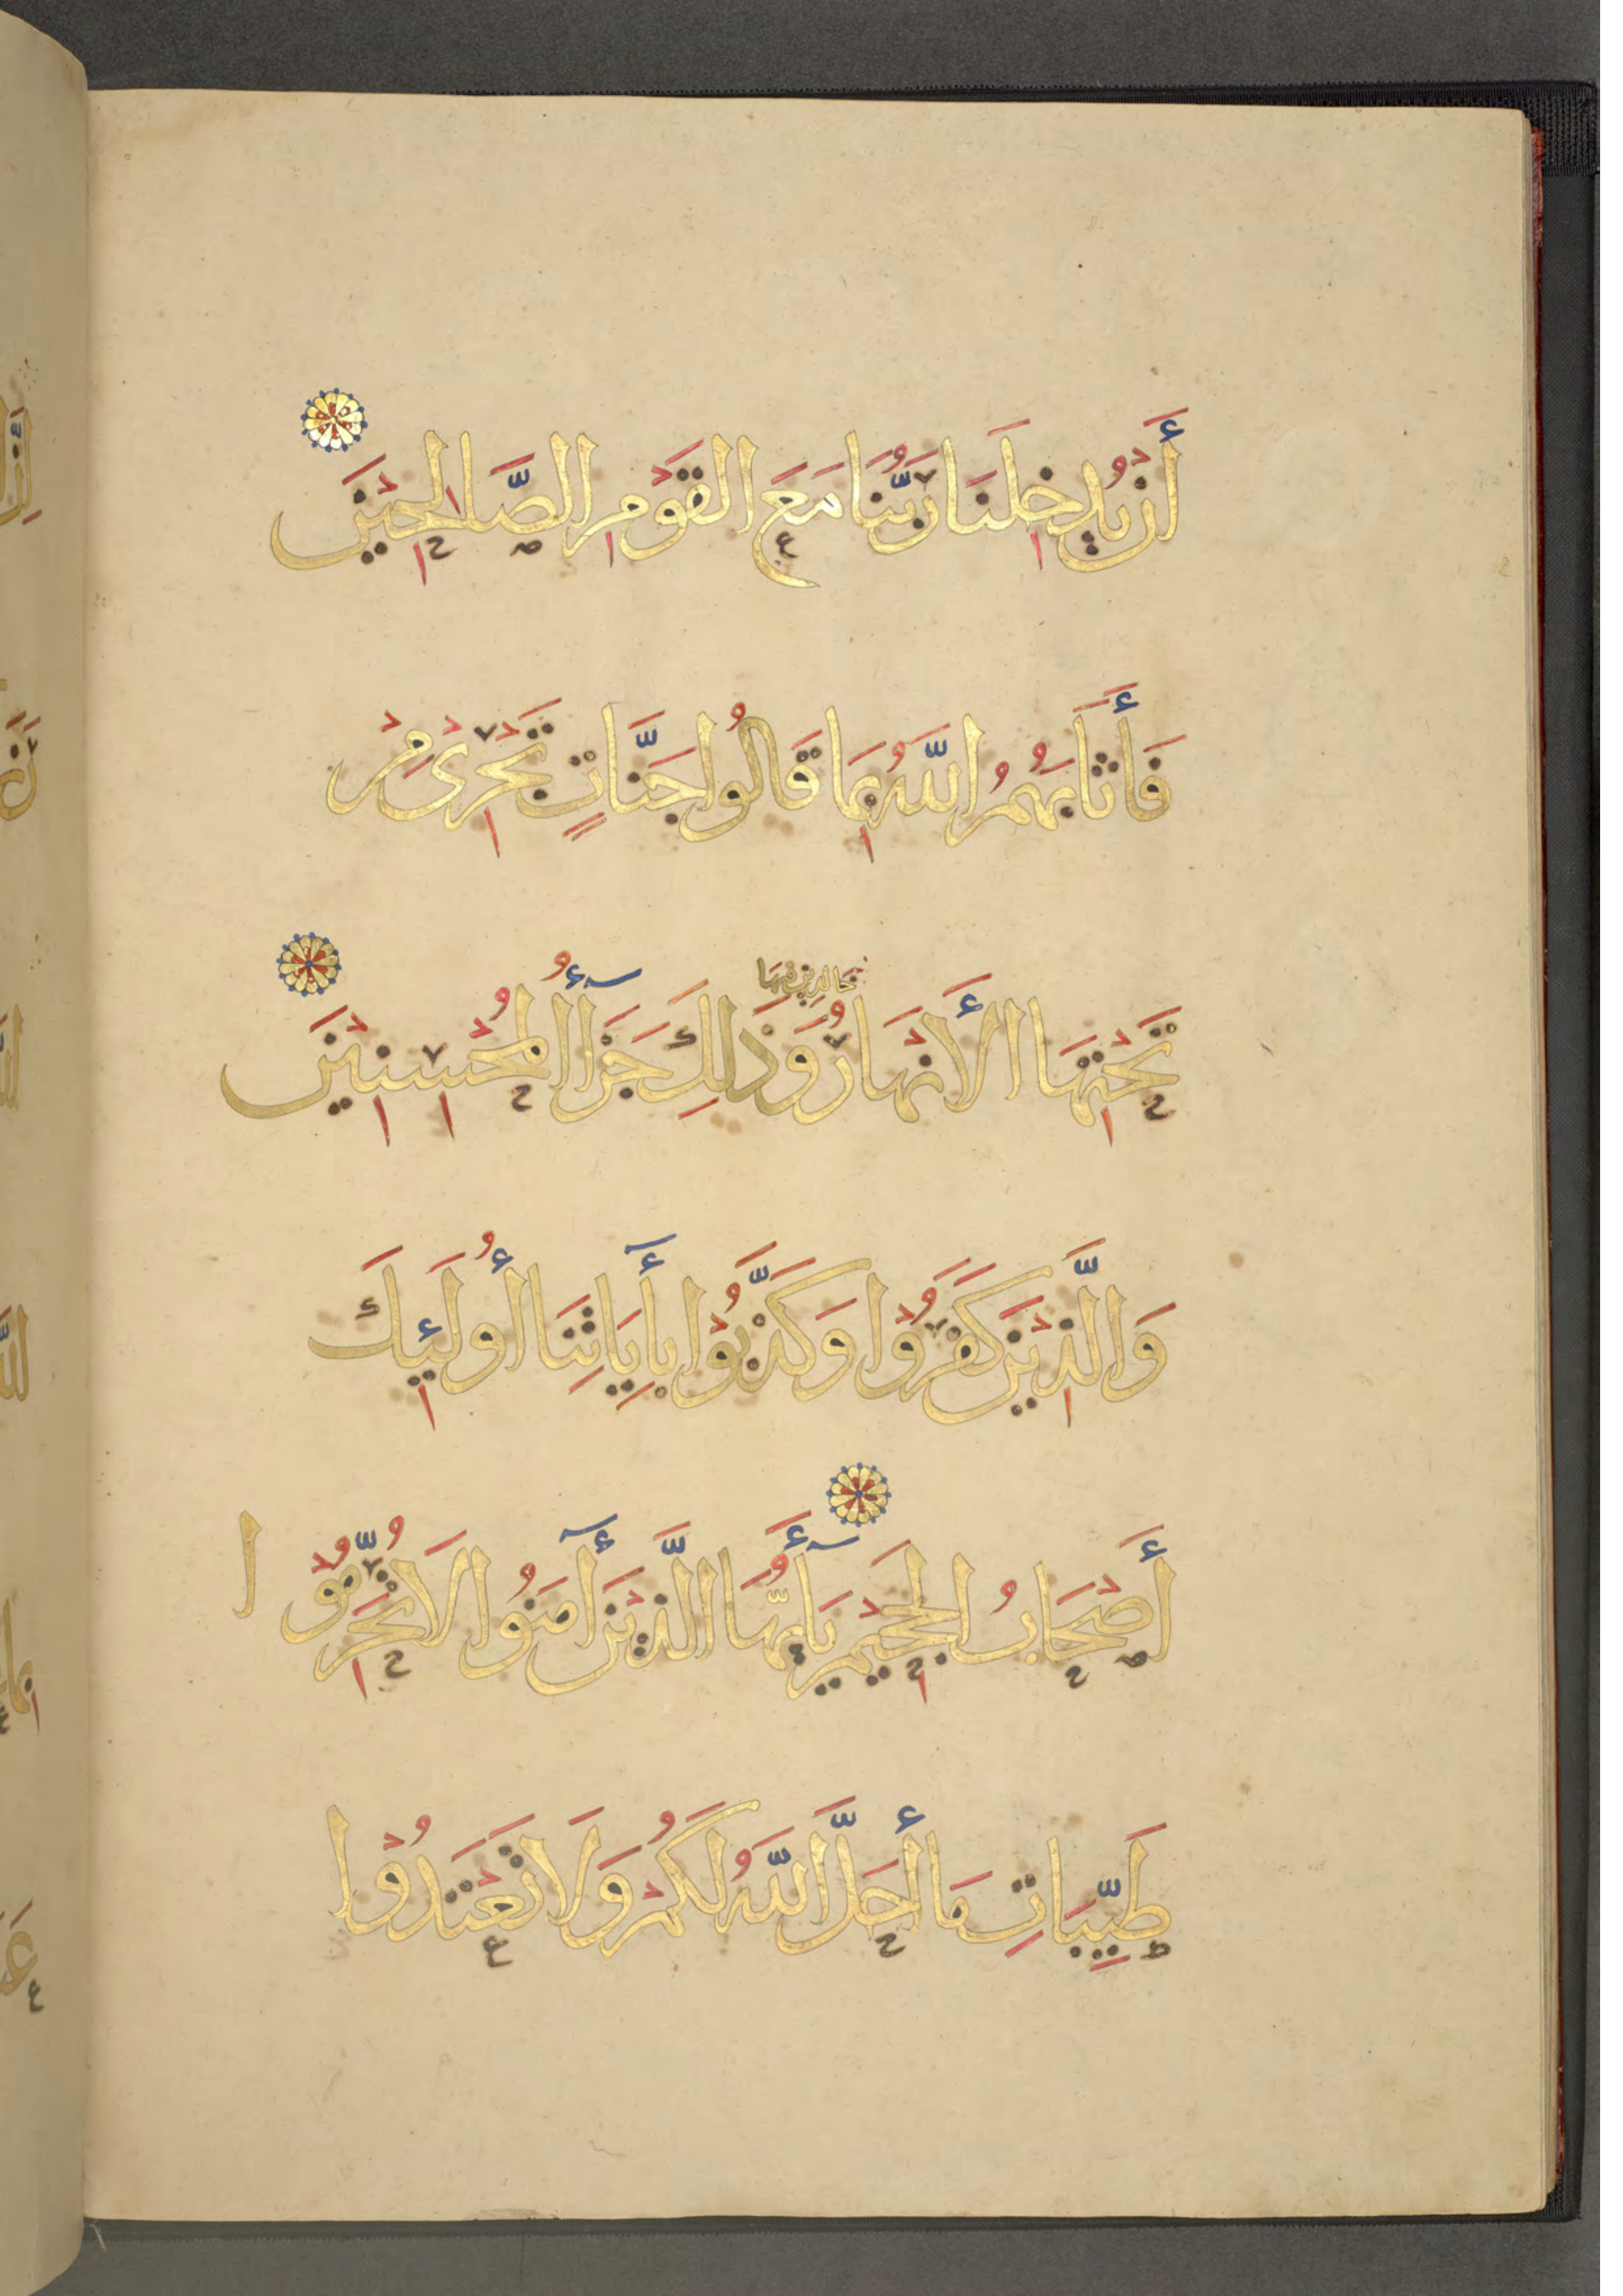 أَنْ يُدْخِلَنَا رَبُّنَا مَعَ الْقَوْمِ الصَّالِحِيْنَ
فَأَثَابَهُمُ اللَّهُ بِمَا قَالُوا جَنَّاتٍ تَجْرِىْ مِنْ
خَالِدِينَ فِيهَا
تَحْتِهَا الأَنْهَارُ وَذَلِكَ جَزَآءُ الْمُحْسِنِيْنَ
وَالَّذِيْنَ كَفَرُوْا وَكَذَّبُوْا بِأَيَاتِنَا أُولَئِكَ
أَصْحَابُ الْجَحِيْمِ يَآأَيُّهَا الَّذِيْنَ آمَنُوا لَا تُحَرِّمُوْا
طَيِّبَاتِ مَا أَحَلَّ اللَّهُ لَكُمْ وَلَا تَعْتَدُوْا